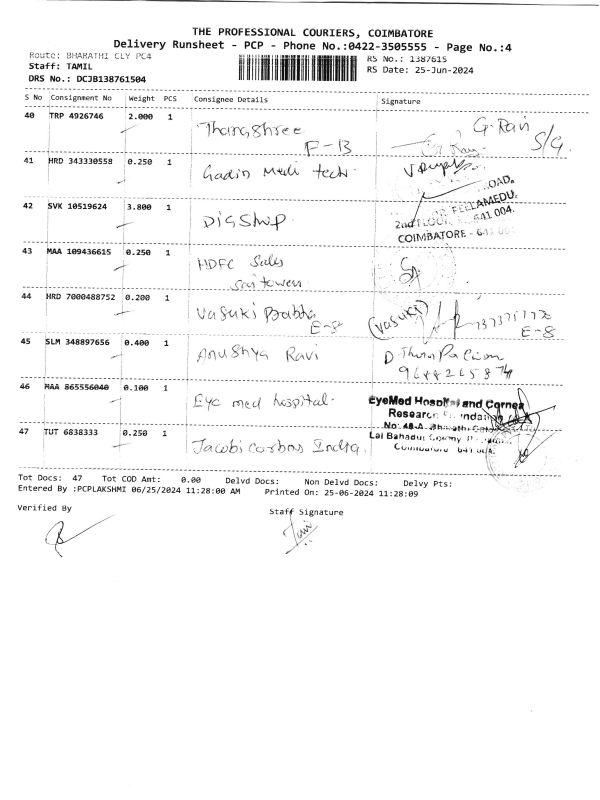 THE PROFESSIONAL COURIERS, COIMBATORE
Delivery Runsheet - PCP - Phone No.:0422-3505555 - Page No.:4
Route: BHARATHI CLY PC4
RS No.: 1387615
Staff: TAMIL
RS Date: 25-Jun-2024
DRS No.: DCJB138761504
S No Consignment No Weight PCS Consignee Details Signature
40 TRP 4926746 2.000 1
Thangshree
F-13
G. Ravi
S/G
41 HRD 343330558 0.250 1
Gadin Medi tech
42 SVK 10519624 3.800 1
DigShop
2nd FLOOR
641 004.
COIMBATORE - 641 004
43 MAA 109436615 0.250 1
HDFC Sales
Sai towers
44 HRD 7000488752 0.200 1
Vasuki Prabha
E-8
(Vasuki)
E-8
45 SLM 348897656 0.400 1
Anushya Ravi
46 MAA 865556040 0.100 1
Eye med hospital.
EyeMed Hospital and Cornea
Research Foundation
No: 48-A, Bharathi
Lal Bahadur Colony
Coimbatore 641 004.
47 TUT 6838333 0.250 1
Jacobi carbons India.
Tot Docs: 47 Tot COD Amt: 0.00 Delvd Docs: Non Delvd Docs: Delvy Pts:
Entered By :PCPLAKSHMI 06/25/2024 11:28:00 AM Printed On: 25-06-2024 11:28:09
Verified By
Staff Signature